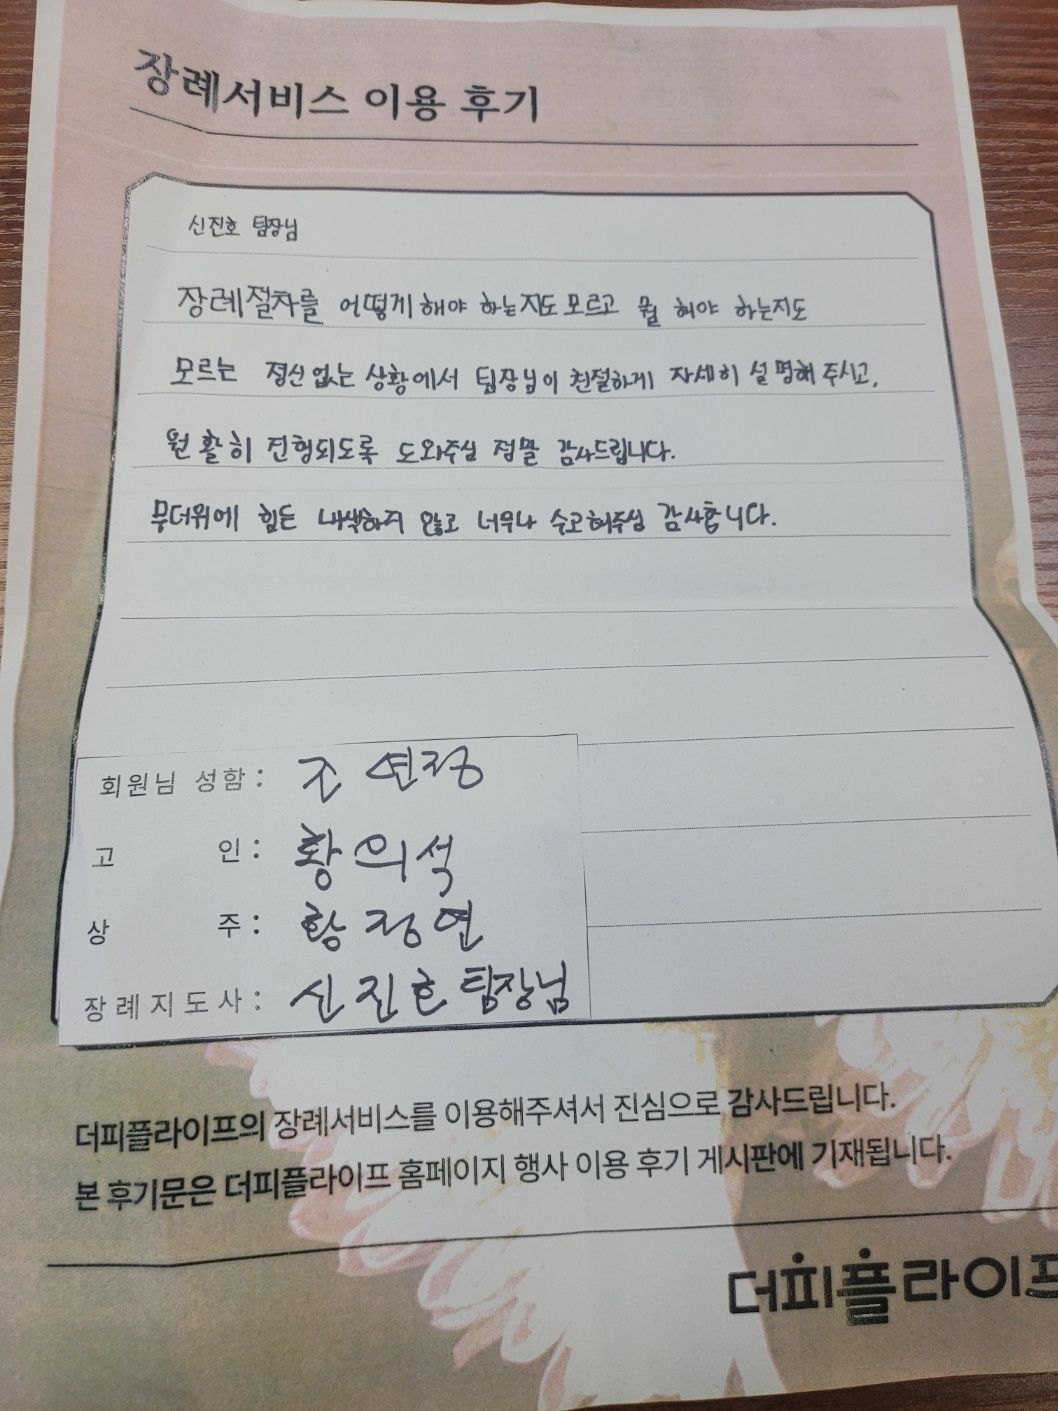 장례서비스 이용 후기
신진호 팀장님
장례절차를 어떻게 해야 하는지도 모르고 뭘 해야 하는지도
모르는 정신없는 상황에서 팀장님이 친절하게 자세히 설명해 주시고,
원활히 진행되도록 도와주심 정말 감사드립니다.
무더위에 힘든 내색하지 않고 너무나 수고해주심 감사합니다.
회원님 성함 : 조연정
고 인 : 황의석
상 주 : 황정연
장례지도사 : 신진호 팀장님
더피플라이프의 장례서비스를 이용해주셔서 진심으로 감사드립니다.
본 후기문은 더피플라이프 홈페이지 행사 이용 후기 게시판에 기재됩니다.
더피플라이프